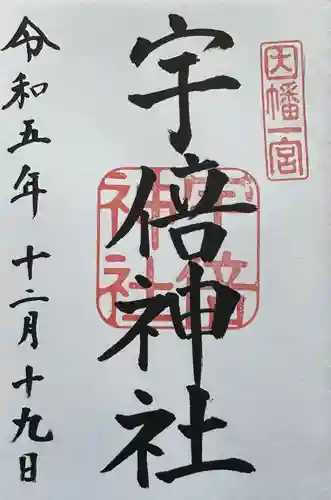 因幡一宮
宇倍神社
宇倍神社
令和五年 十二月十九日